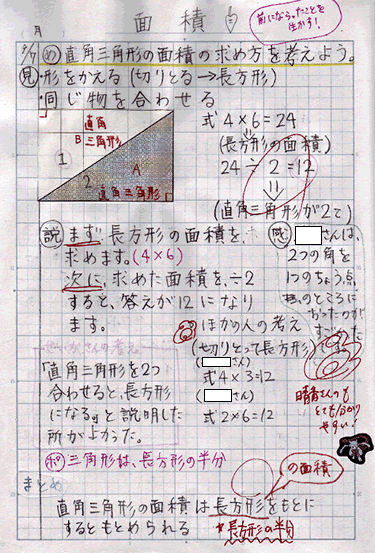 面積⑤
前にならったことを
生かす！
月
2/7 め 直角三角形の面積の求め方を考えよう。
見 ・形をかえる(切りとる→長方形)
・同じ物を合わせる
直角
B 三角形
1
2
A
直角三角形
式 4×6=24
(長方形の面積)
24÷2=12
(直角三角形が2こ)
説 まず、長方形の面積を、
求めます。(4×6)
次に、求めた面積を、÷2
すると、答えが12になり
ます。
感 さんは、
2つの角を
1つのちょう点、
のところに
すごかった
ほかの人の考え
(切りとって長方形)
(さん)
式 4×3=12
(さん)
式 2×6=12
さんの考え
「直角三角形を2つ
合わせると、長方形
になる。」と説明した
所がよかった。
とても分かり
やすい！
ポ 三角形は、長方形の半分
まとめ
の面積
直角三角形の面積は長方形をもとに
するともとめられる
*長方形の半分